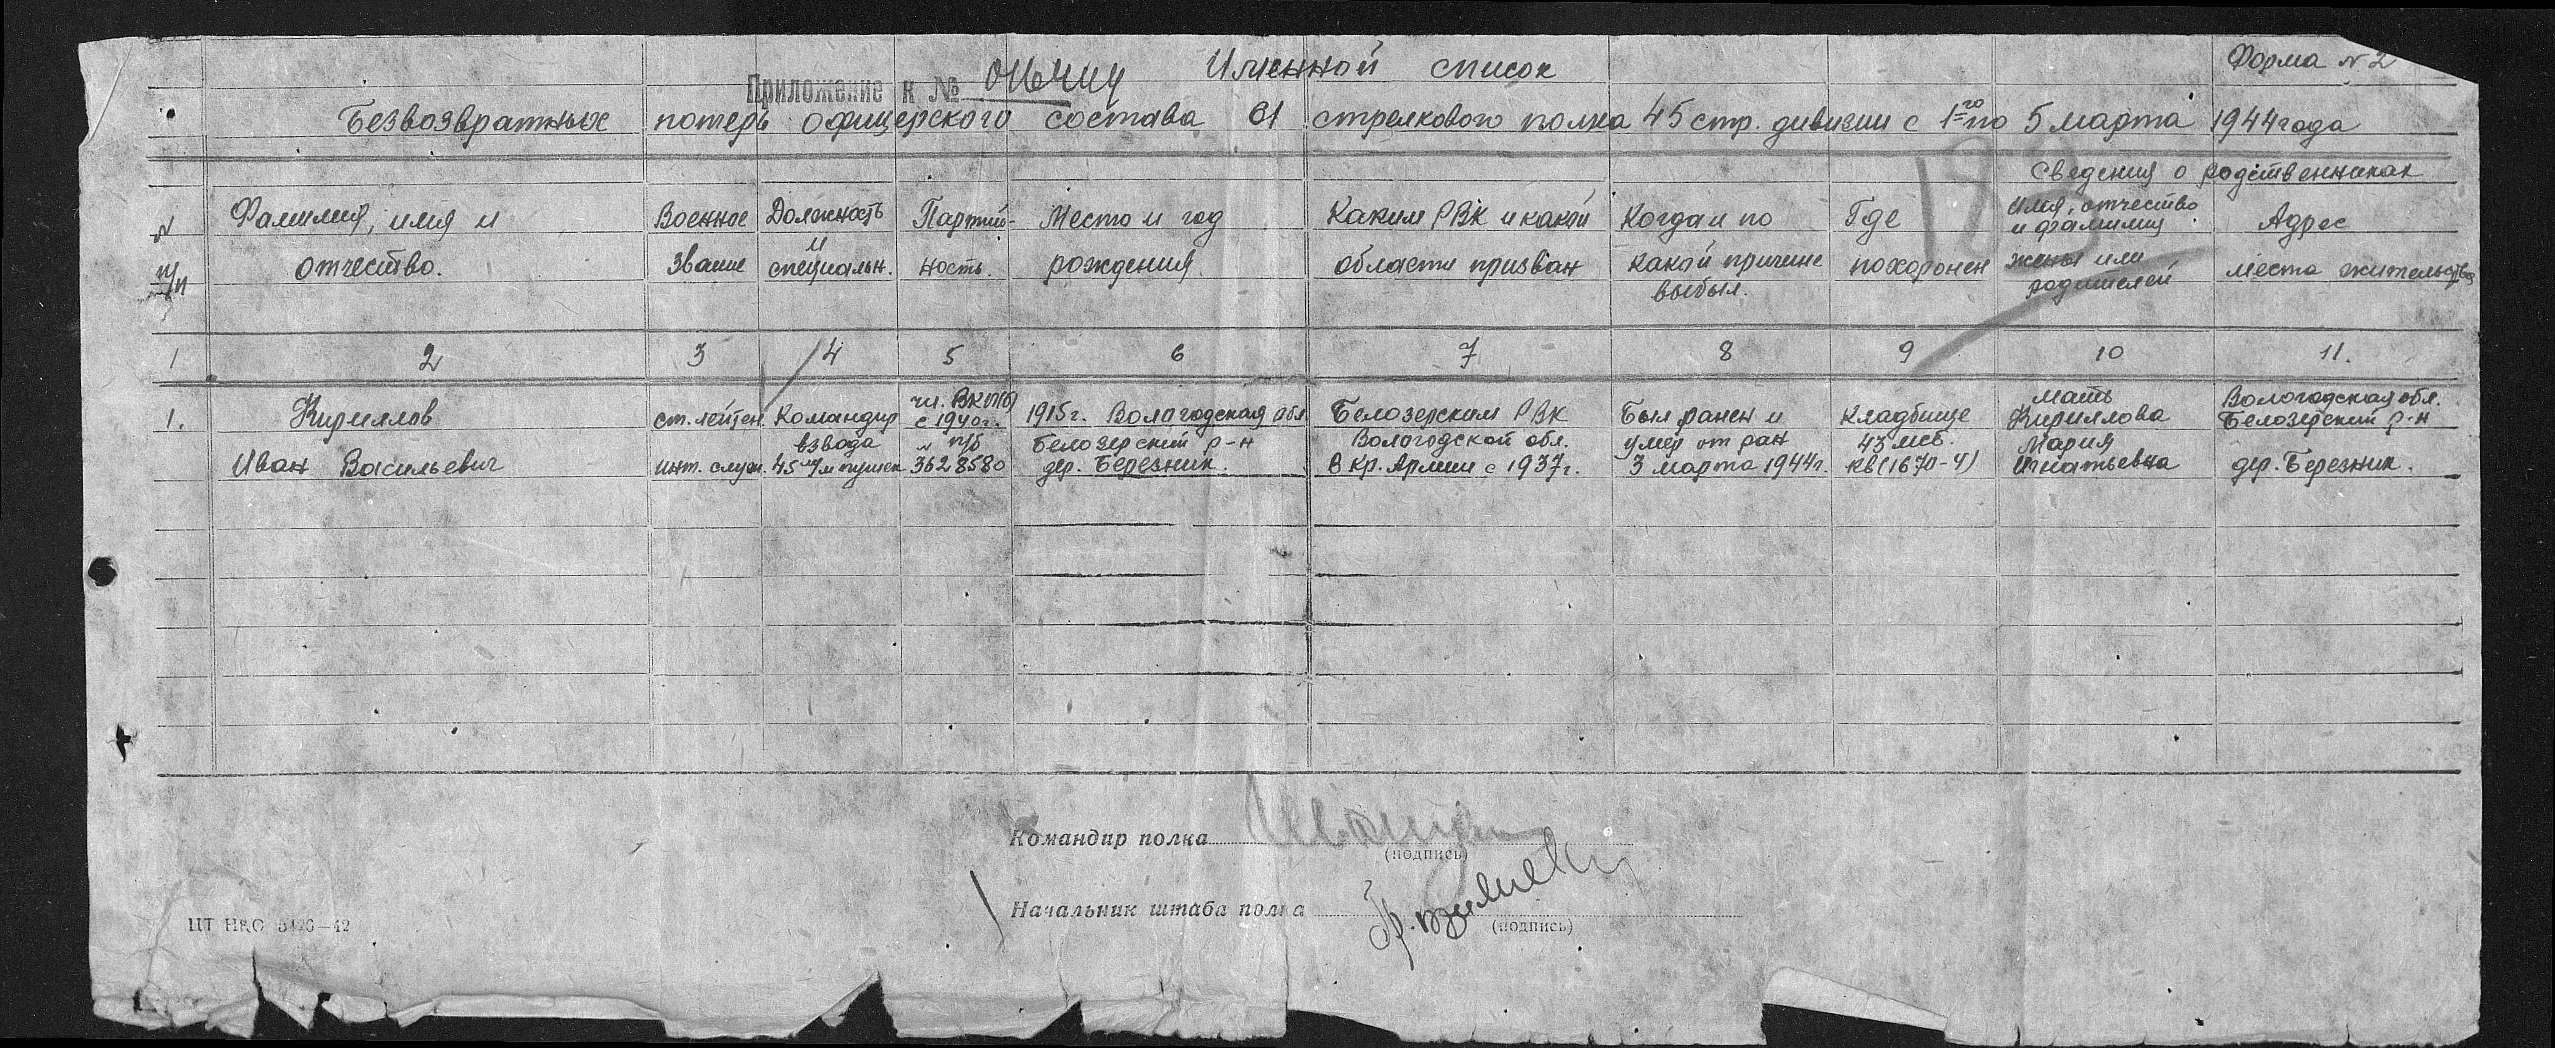 Форма N 2
Именной список
Приложение к №
Безвозвратных потерь офицерского состава 61 стрелкового полка 45 стр. дивизии с 1го по 5 марта 1944 года
Сведения о родственниках
N п/п
Фамилия, имя и
отчество.
Военное
звание
Должность
и
специальн.
Партий-
ность.
Место и год
рождения
Каким РВК и какой
области призван
Когда и по
какой причине
выбыл.
Где
похоронен
Имя, отчество
и фамилия
жены или
родителей
Адрес
места жительства
1 2 3 4 5 6 7 8 9 10 11.
1.
Кириллов
Иван Васильевич
ст. лейтен.
инт. служ.
Командир
взвода
45 м/м пушек
чл. ВКП(б)
с 1940 г.
п/б
3628580
1915 г. Вологодская обл.
Белозерский р-н
дер. Березник.
Белозерским РВК
Вологодской обл.
В Кр. Армии с 1937 г.
Был ранен и
умер от ран
3 марта 1944 г.
Кладбище
43 мсб.
кв (1670-4)
Мать
Кириллова
Мария
Игнатьевна
Вологодская обл.
Белозерский р-н
дер. Березник.
Командир полка
(подпись)
Начальник штаба полка
(подпись)